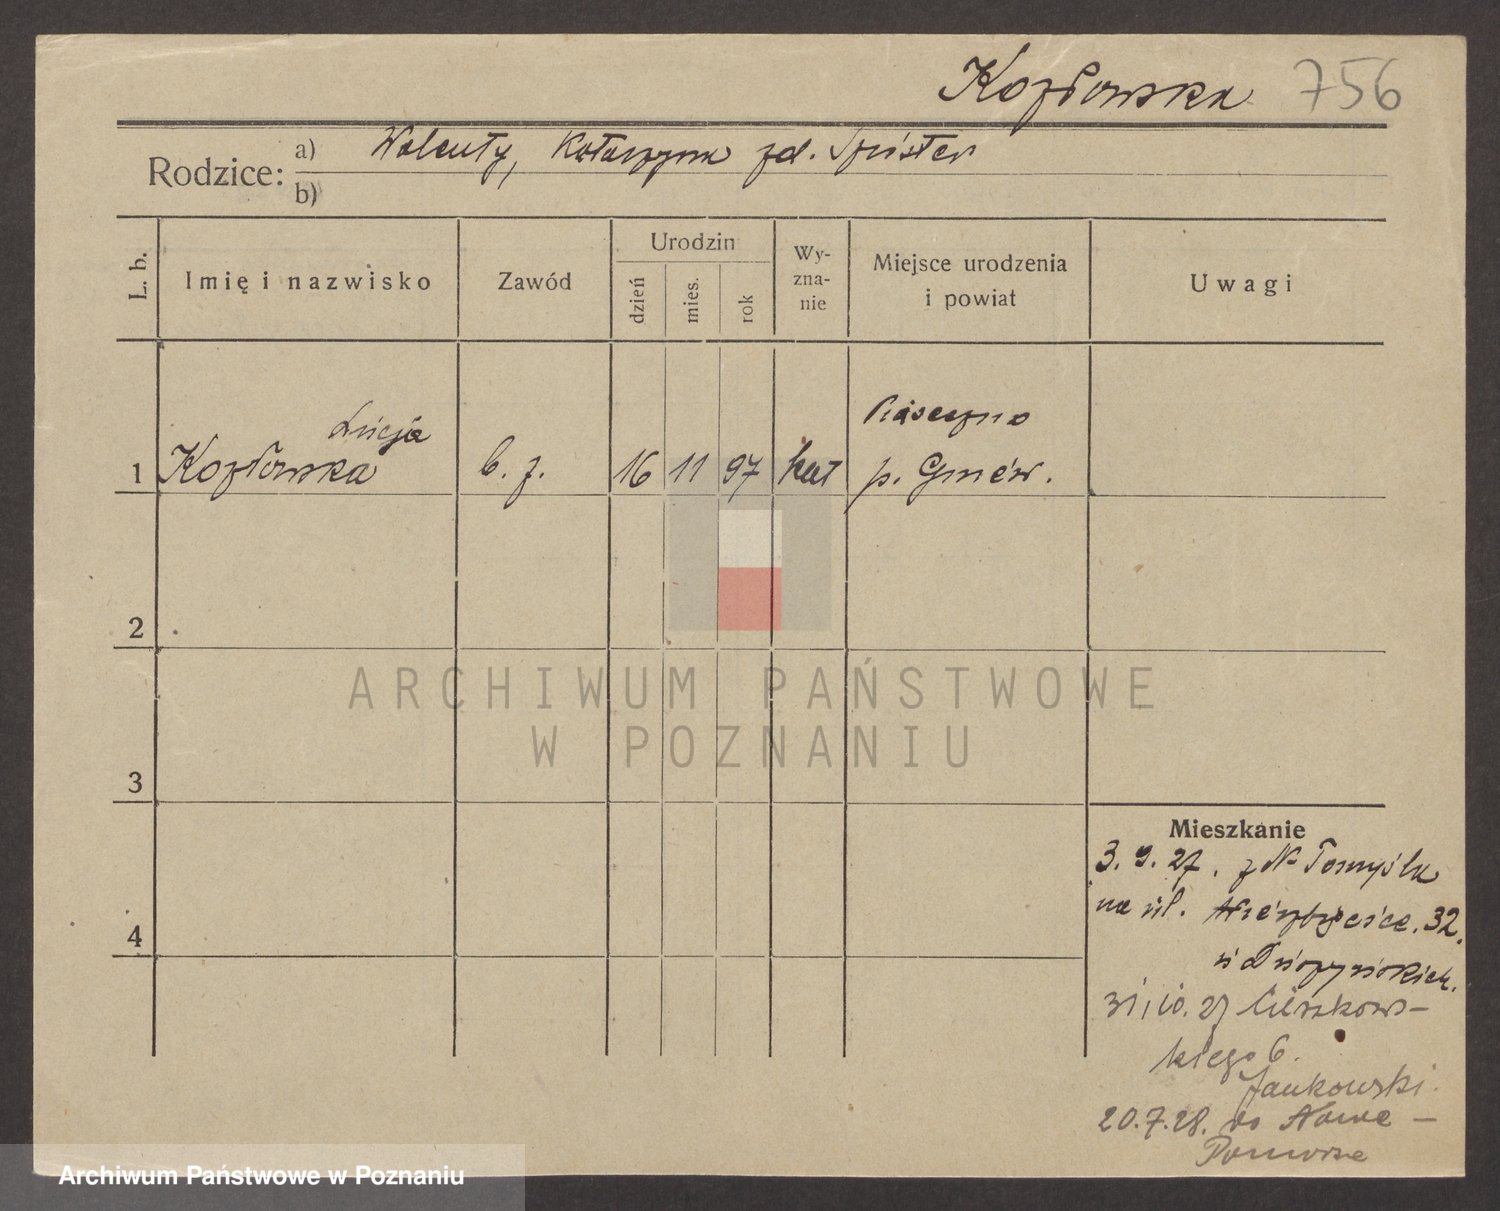 Kozłowska 756
Rodzice: a) Walenty, Katarzyna zd.
b)
L. b.
Imię i nazwisko
Zawód
Urodzin
dzień
mies.
rok
Wy-
zna-
nie
Miejsce urodzenia
i powiat
Uwagi
Łucja
1 Kozłowska b. z. 16 11 97 kat
Piaseczno
p. Gniew.
2
3
4
Mieszkanie
3. 9. 27. z N. Tomyśla
na ul. Wierzbięcice. 32.
u
31.10. 27 Cieszkows-
kiego 6.
Jankowski.
20.7.28. do Nowe -
Pomorze
ARCHIWUM PAŃSTWOWE
W POZNANIU
Archiwum Państwowe w Poznaniu